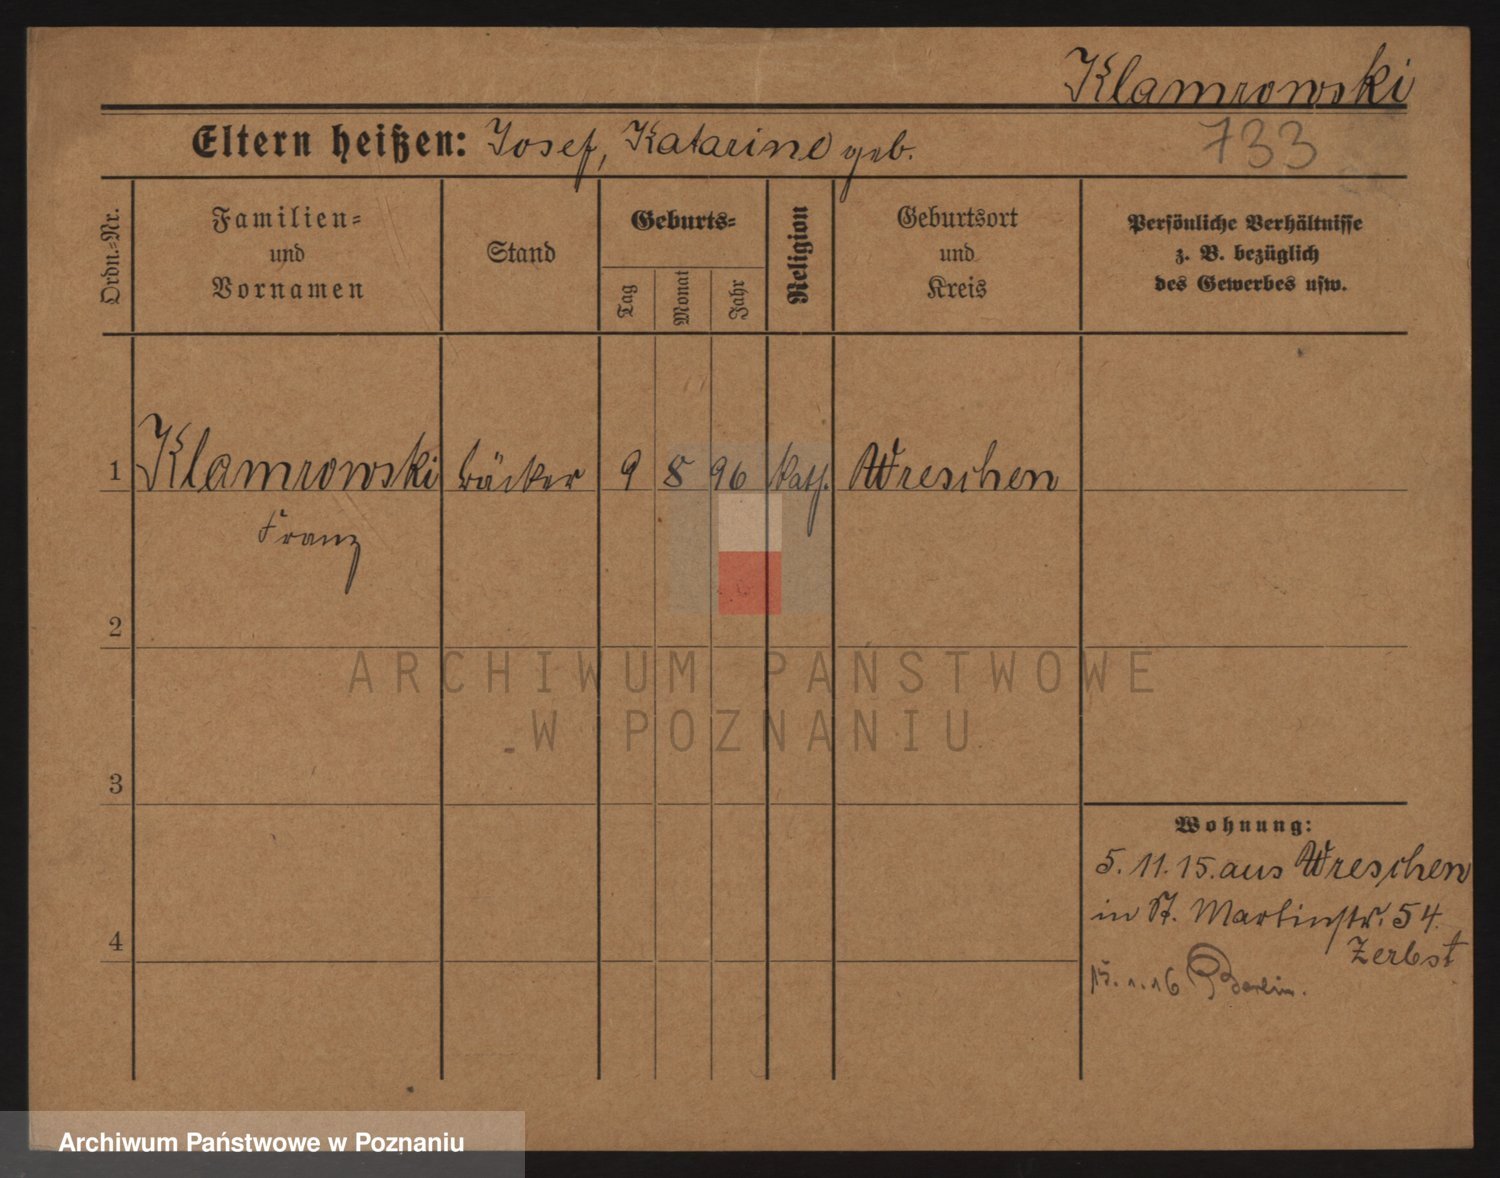 Klamrowski
Eltern heißen: Josef, Katarine geb.
733
Ordn.=Nr.
Familien=
und
Vornamen
Stand
Geburts=
Tag
Monat
Jahr
Religion
Geburtsort
und
Kreis
Persönliche Verhältnisse
z. B. bezüglich
des Gewerbes usw.
1 Klamrowski Bäcker 9 8 96 kath. Wreschen
Franz
2
ARCHIWUM PAŃSTWOWE
W POZNANIU
3
Wohnung:
5. 11. 15. aus Wreschen
in St. Martinstr. 54.
Zerbst
4
15. 1. 16 Berlin.
Archiwum Państwowe w Poznaniu